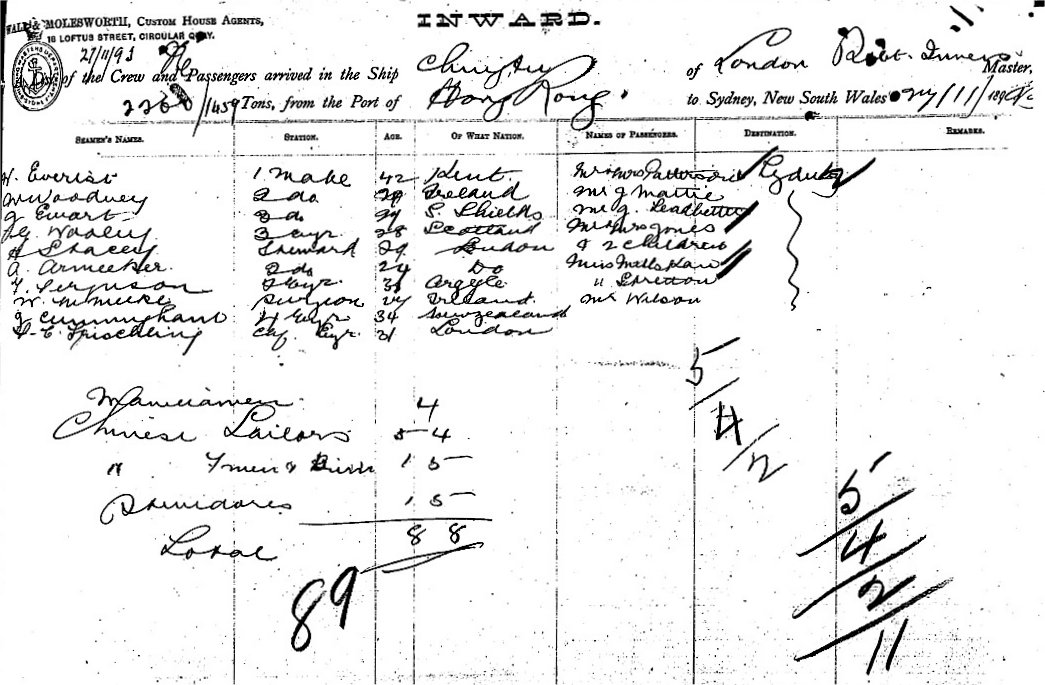 INWARD.
WALL & MOLESWORTH, CUSTOM HOUSE AGENTS,
16 LOFTUS STREET, CIRCULAR QUAY.
27/11/93
List of the Crew and Passengers arrived in the Ship Chingtu of London Robt. Innes Master,
2268/1459 Tons, from the Port of Hong Kong. to Sydney, New South Wales 27/11/189
SEAMEN'S NAMES. STATION. AGE. OF WHAT NATION. NAMES OF PASSENGERS. DESTINATION. REMARKS.
H. Everist 1 Mate 42 Kent Mr & Mrs Sydney
2 do 29 Ireland Mr J Mattie
J Ewart 3 do 29 S. Shields Mr J. Leadbetter
3 Engr 28 Scotland Mr & Mrs Jones
H Stacey Steward 29 London & 2 Children
A. 2 do 24 Do Miss Mills
T. Ferguson 2 Engr 31 Argyle " Stretton
W. Surgeon 24 Ireland. Mr Wilson
J Cunningham 4 Engr 34 New Zealand
E. Engr 31 London
5
4 4
Chinese Sailors 54
2
" 15
15
5
Total 88
4
89
2
11